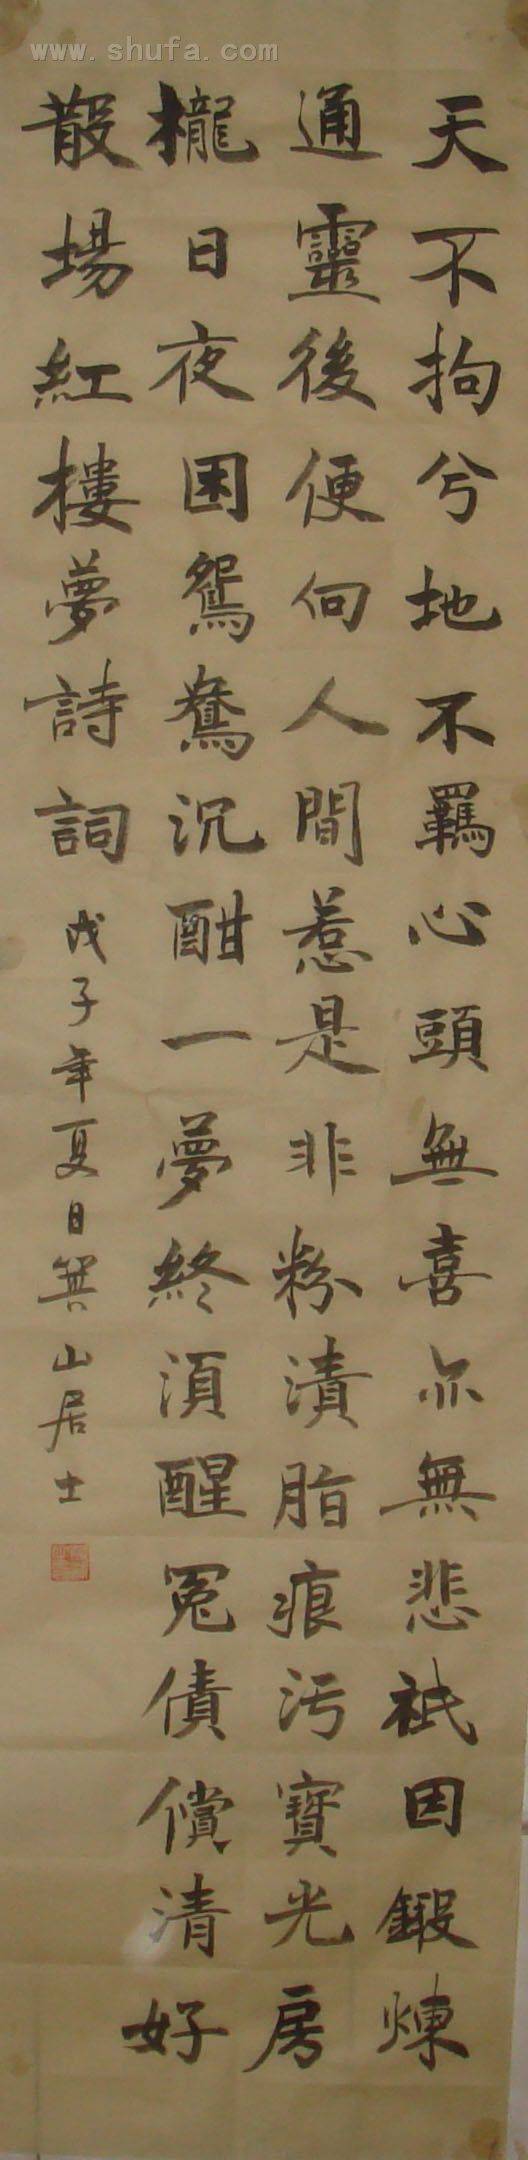 www.shufa.com
天不拘兮地不羈心頭無喜亦無悲祇因鍛煉
通靈後便向人間惹是非粉漬脂痕污寶光房
櫳日夜困鴛鴦沉酣一夢終須醒冤債償清好
散場紅樓夢詩詞
戊子年夏日箕山居士